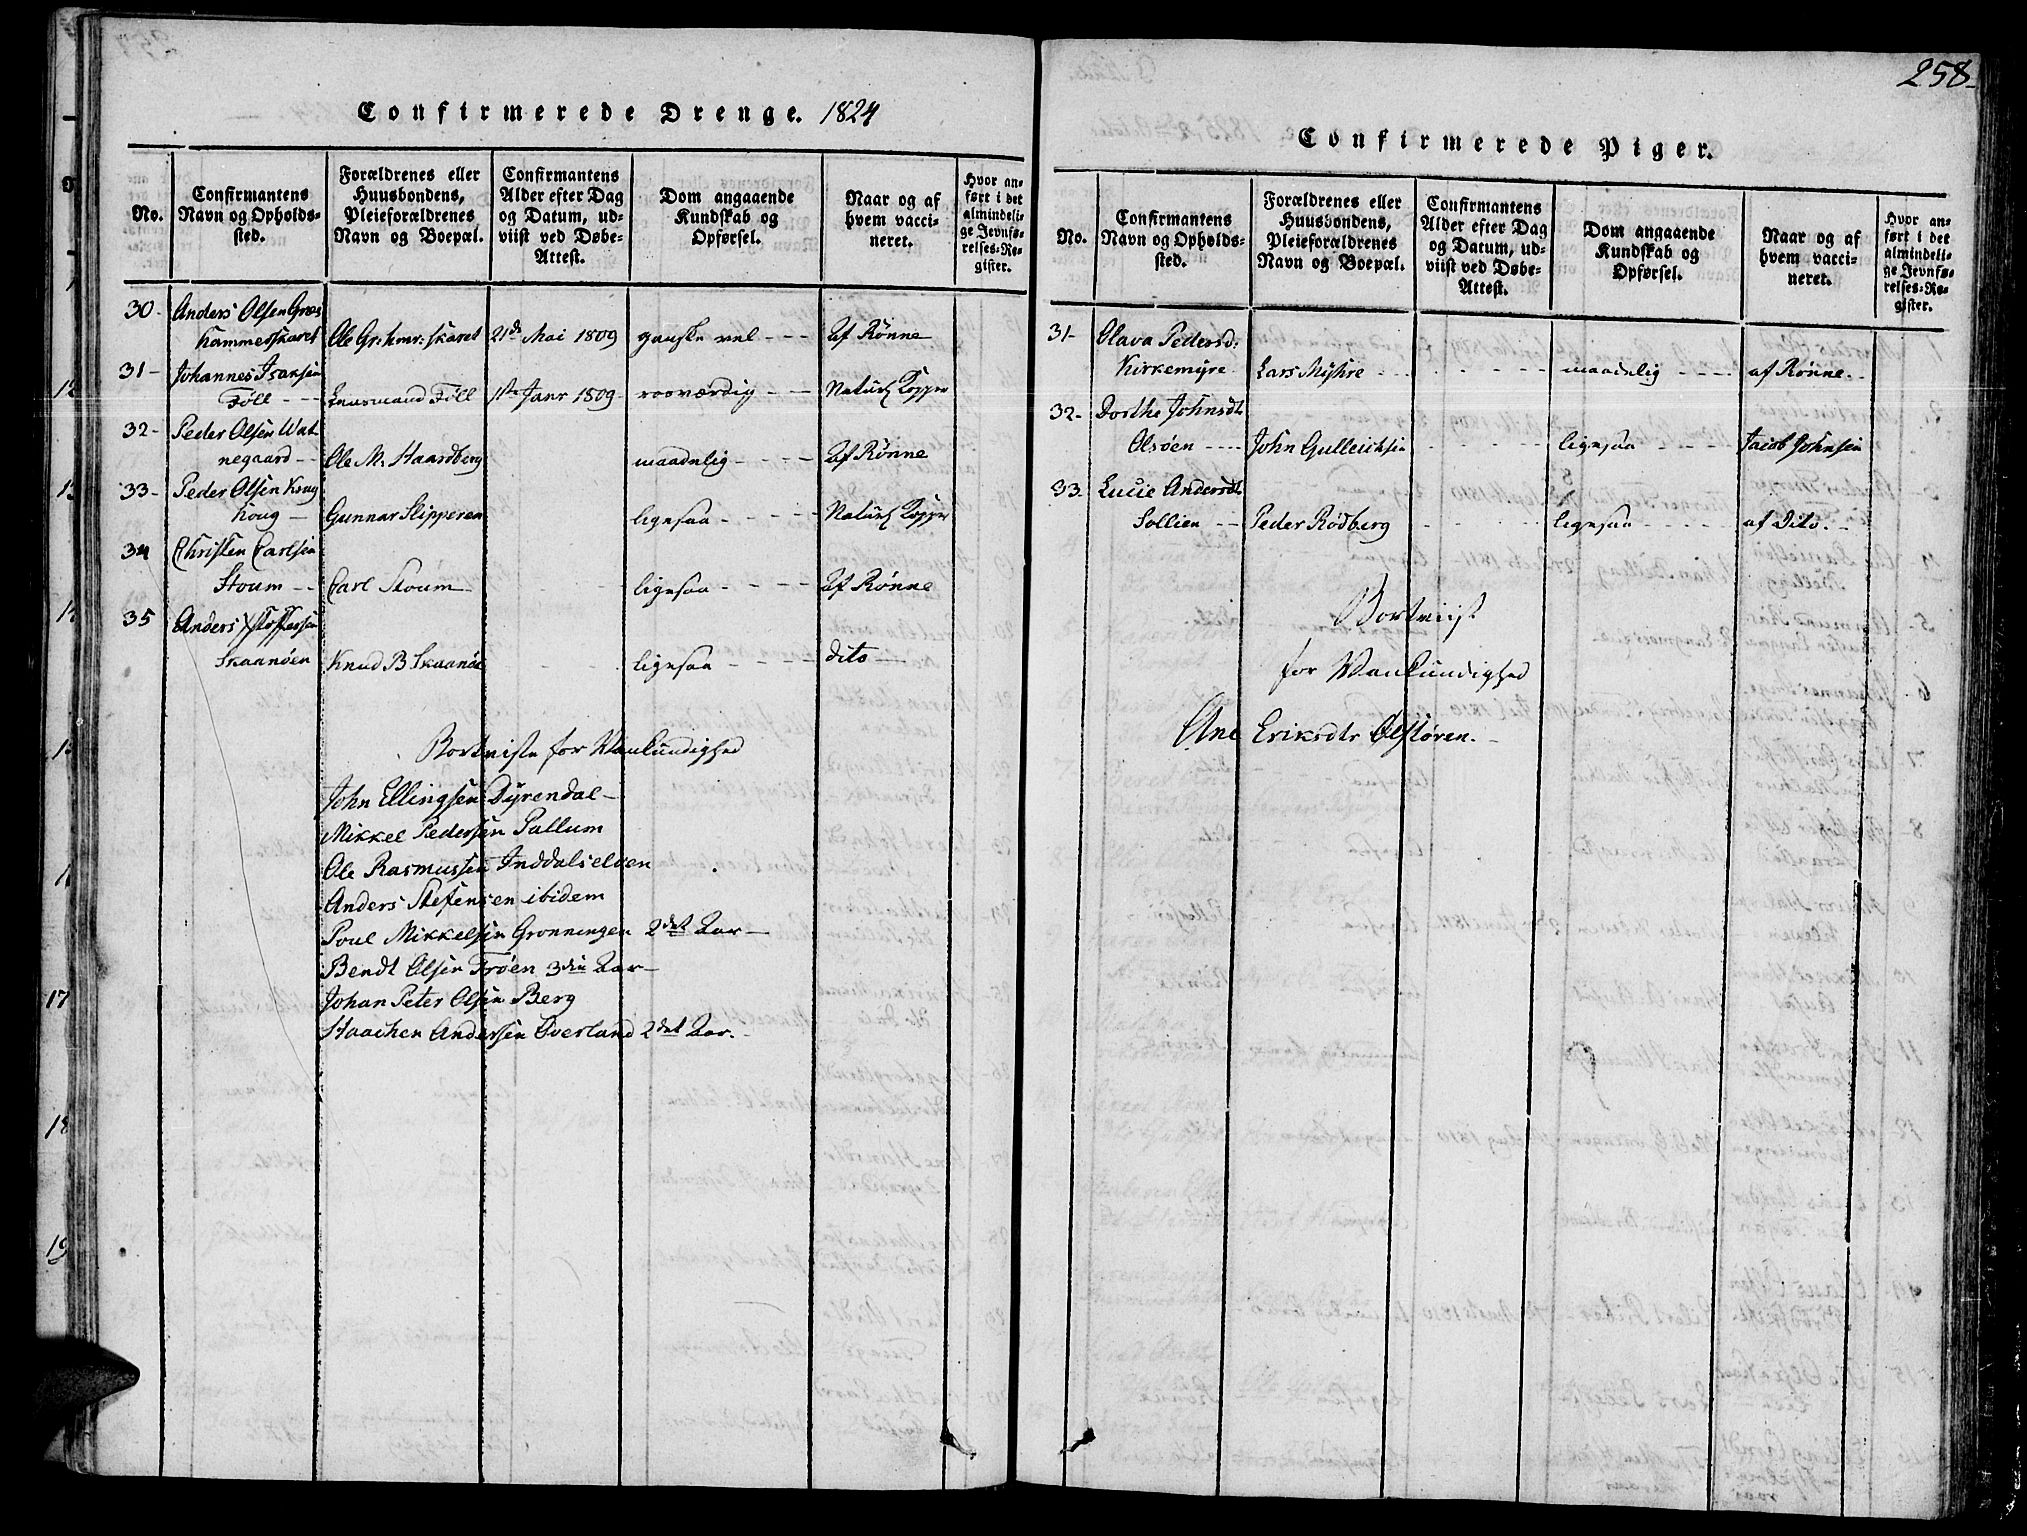 258
Confirmerede Drenge. 1824
No.
Confirmantens
Navn og Opholds-
sted.
Forældrenes eller
Huusbondens,
Pleieforældrenes
Navn og Boepæl.
Confirmantens
Alder efter Dag
og Datum, ud-
viist ved Døbe-
Attest.
Dom angaaende
Kundskab og
Opførsel.
Naar og af
hvem vacci-
neret.
Hvor an-
ført i det
almindeli-
ge Jevnfø-
relses-Re-
gister.
30- Anders Olsen Græs
hammerskaret Ole Gr:hmr:skaret 21de Mai 1809 ganske vel - - - Af Rønne
31- Johannes Isaksen
Föll - - - Lensmand Föll 1ste Janr 1809- Naturl Kopper
32- Peder Olsen Wat
negaard - - Ole M: Haardberg maadelig - - - - Af Rønne
33- Peder Olsen
Gunnar Skipperen ligesaa - - - - Naturl Kopper
34 Christen Carlsen
Stoum - - Carl Stoum ligesaa - - - - Af Rønne
35 Anders
Skaanöen Knud B Skaanöe ligesaa - - - - dito
Bortviste for Vankundighed
John Ellingsen Dyrendal-
Mikkel Pedersen Pallum
Ole Rasmussen Inddalselven
Anders Stefensen ibidem
Poul Mikkelsen Grønningen 2det Aar-
Bendt Olsen Trøen 3die Aar-
Johan Peter Olsen Berg
Haachen Andersen Overland 2det Aar.
Confirmerede Piger.
No.
Confirmantens
Navn og Opholds-
sted.
Forældrenes eller
Huusbondens,
Pleieforældrenes
Navn og Boepæl.
Confirmantens
Alder efter Dag
og Datum, ud-
viist ved Døbe-
Attest.
Dom angaaende
Kundskab og
Opførsel.
Naar og af
hvem vacci-
neret.
Hvor an-
ført i det
almindeli-
ge Jevnfø-
relses-Re-
gister.
31- Olava Pedersd:
Kirkemyre Lars Myhre - - - maadelig - - - - af Rønne.
32- Dorthe Johnsdtr
Olsøen - - - John Gulleichsen ligesaa - - - - Jacob Johnsen
33- Lucie Andersdtr
Sollien - - Peder Rödberg ligesaa - - - - af Dito.
Bortviist
for Vankundighed
Ane Eriksdtr Ølstøren.-
12
13
14
17
18
19